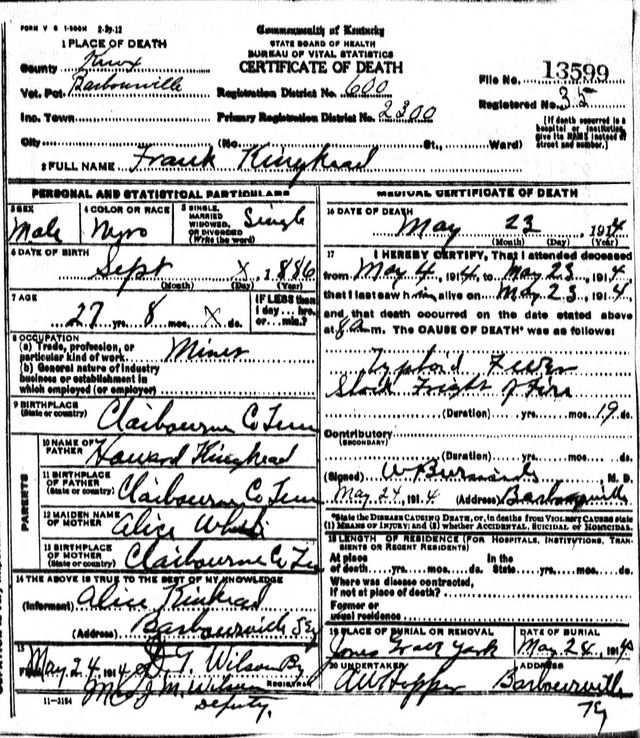 FORM V S 1-500M 2-29-12
Commonwealth of Kentucky
STATE BOARD OF HEALTH
BUREAU OF VITAL STATISTICS
CERTIFICATE OF DEATH
1 PLACE OF DEATH
County Knox
Vot. Pct. Barbourville
Registration District No. 600
File No. 13599
Inc. Town
Primary Registration District No. 2300
Registered No. 35
City (No. St., Ward)
[If death occurred in a hospital or institution, give its NAME instead of street and number.]
2 FULL NAME Frank Kinghead
PERSONAL AND STATISTICAL PARTICULARS
3 SEX Male
4 COLOR OR RACE
5 SINGLE, MARRIED WIDOWED, OR DIVORCED (Write the word) Single
6 DATE OF BIRTH
Sept X, 1886
(Month) (Day) (Year)
7 AGE
27 yrs. 8 mos. X ds.
IF LESS than 1 day... hrs. or... min.?
8 OCCUPATION
(a) Trade, profession, or particular kind of work Miner
(b) General nature of industry business or establishment in which employed (or employer)
9 BIRTHPLACE (State or country) Claibourne Co Tenn
PARENTS
10 NAME OF FATHER Howard Kinghead
11 BIRTHPLACE OF FATHER (State or country) Claibourne Co Tenn
12 MAIDEN NAME OF MOTHER Alice
13 BIRTHPLACE OF MOTHER (State or country) Claibourne Co Ten
14 THE ABOVE IS TRUE TO THE BEST OF MY KNOWLEDGE
(Informant) Alice Kinhead
(Address) Barbourville Ky
15
Filed May 24, 1914 D. T. Wilson By
REGISTRAR
Mrs J M. Wilson
Deputy.
11-3184
MEDICAL CERTIFICATE OF DEATH
16 DATE OF DEATH
May 23, 1914
(Month) (Day) (Year)
17 I HEREBY CERTIFY, That I attended deceased
from May 4, 1914, to May 23, 1914
that I last saw him alive on May 23, 1914,
and that death occurred on the date stated above
at 8 a m. The CAUSE OF DEATH* was as follows:
Typhoid Fever
Shock Fright of Fire
(Duration) yrs. mos. 19 ds.
Contributory
(SECONDARY)
(Duration) yrs. mos. ds.
(Signed) M. D.
May 24, 1914 (Address) Barbourville
*State the DISEASE CAUSING DEATH, or, in deaths from VIOLENT CAUSES state (1) MEANS OF INJURY; and (2) whether ACCIDENTAL, SUICIDAL or HOMICIDAL.
18 LENGTH OF RESIDENCE (FOR HOSPITALS, INSTITUTIONS, TRANSIENTS OR RECENT RESIDENTS)
At place of death yrs. mos. ds. In the State yrs. mos. ds.
Where was disease contracted, if not at place of death?
Former or usual residence
19 PLACE OF BURIAL OR REMOVAL
DATE OF BURIAL
May 24, 1914
20 UNDERTAKER
ADDRESS
A W Hopper
Barbourville
Ky